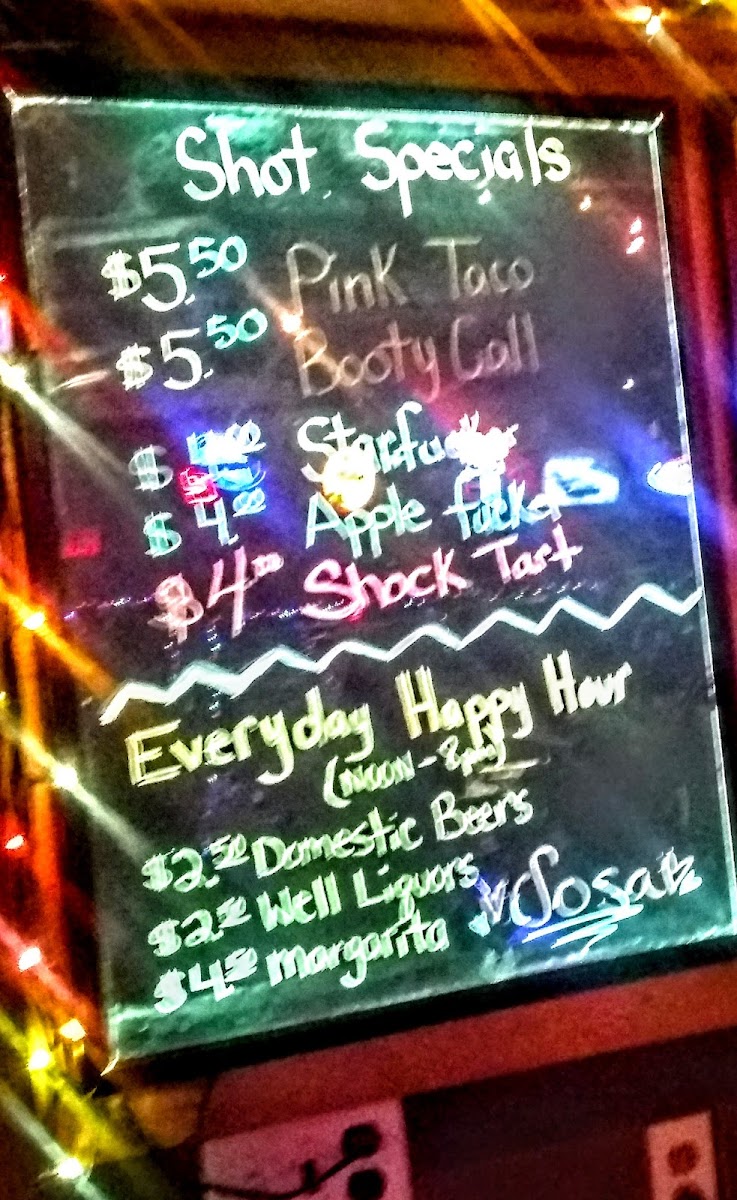 Shot Specials
$5.50 Pink Taco
$5.50 Booty Call
$ Starfucker
$4.00 Apple fucker
$4.00 Shock Tart
Everyday Happy Hour
(NOON - 8pm)
$2.50 Domestic Beers
$2.50 Well Liquors
$4.00 Margarita
Sosa